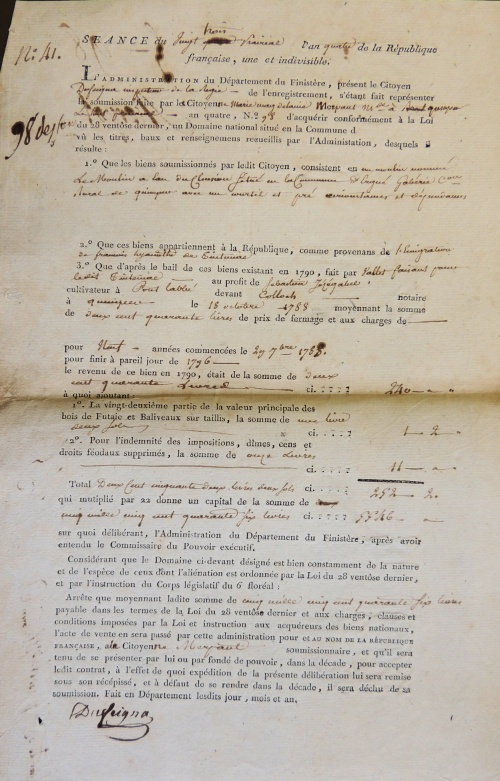 N.° 41.
SEANCE du Vingt trois Prairial l'an quatre de la République
française, une et indivisible.
L'ADMINISTRATION du Département du Finistère, présent le Citoyen
de l'enregistrement, s'étant fait représenter
la soumission faite par le Citoyenne Marie
98 an quatre, N.° 98 d'acquérir conformément à la Loi
du 28 ventôse dernier, un Domaine national situé en la Commune d
vu les titres, baux et renseignemens recueillis par l'Administation, desquels il
résulte :
1.° Que les biens soumissionnés par ledit Citoyen, consistent en un moulin nommé
Le Moulin à eau du situé en la Commune d'Ergué Gabéric Can
ton de quimper avec un courtil et pré
2.° Que ces biens appartiennent à la République, comme provenans de l'émigration
de françois hyacinthe de
3.° Que d'après le bail de ces biens existant en 1790, fait par faisant pour
ledit au profit de
cultivateur à Pont devant notaire
à quimper le 18 octobre 1788 moyennant la somme
de deux cent quarante livres de prix de fermage et aux charges de
pour Neuf années commencées le 29 7bre
pour finir à pareil jour de 1796
le revenu de ce bien en 1790, était de la somme de deux
cent quarante Livres ci. : : : : 240
à quoi ajoutant:
1°. La vingt-deuxième partie de la valeur principale des
bois de Futaie et Baliveaux sur taillis, la somme de une livre
deux sols ci. : : : : 1 2
2°. Pour l'indemnité des impositions, dîmes, cens et
droits féodaux supprimés, la somme de onze Livres
ci. : : : : 11
Total Deux Cent cinquante deux livres deux sols ci. : : : : 252 2
qui mutiplié par 22 donne un capital de la somme de
cinq mille cinq cent quarante six livres ci. : : : : 5546
sur quoi délibérant, l'Administration du Département du Finistère, après avoir
entendu le Commissaire du Pouvoir exécutif.
Considérant que le Domaine ci-devant désigné est bien constamment de la nature
et de l'espèce de ceux dont l'aliénation est ordonnée par la Loi du 28 ventôse dernier,
et par l'instruction du Corps législatif du 6 floréal :
Arrête que moyennant ladite somme de cinq mille cinq cent quarante six livres
payable dans les termes de la Loi du 28 ventôse dernier et aux charges, clauses et
conditions imposées par la Loi et instruction aux acquéreurs des biens nationaux,
l'acte de vente en sera passé par cette administration pour et AU NOM DE LA RÉPUBLIQUE
FRANÇAISE, à la Citoyenne Morpant soumissionnaire, et qu'il sera
tenu de se présenter par lui ou par fondé de pouvoir, dans la décade, pour accepter
ledit contrat, à l'effet de quoi expédition de la présente délibération lui sera remise
sous son récépissé, et à défaut de se rendre dans la décade, il sera déchu de sa
soumission. Fait en Département lesdits jour, mois et an.